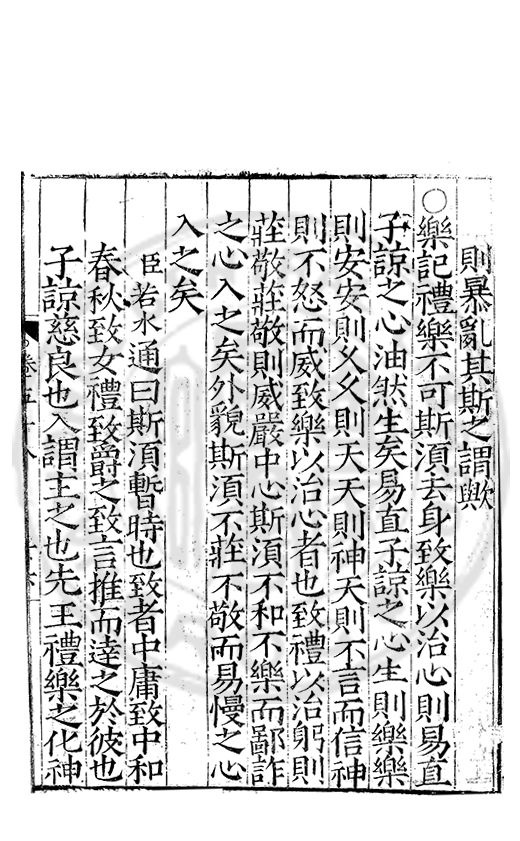 則暴亂其斯之謂歟
○樂記禮樂不可斯湏去身致樂以治心則易直
子諒之心油然生矣易直子諒之心生則樂樂
則安安則乆乆則天天則神天則不言而信神
則不怒而威致樂以治心者也致禮以治躬則
莊敬莊敬則威嚴中心斯湏不和不樂而鄙詐
之心入之矣外貌斯湏不莊不敬而易慢之心
入之矣
臣若水通曰斯湏暫時也致者中庸致中和
春秋致女禮致爵之致言推而達之於彼也
子諒慈良也入謂主之也先王禮樂之化神
卷五十八